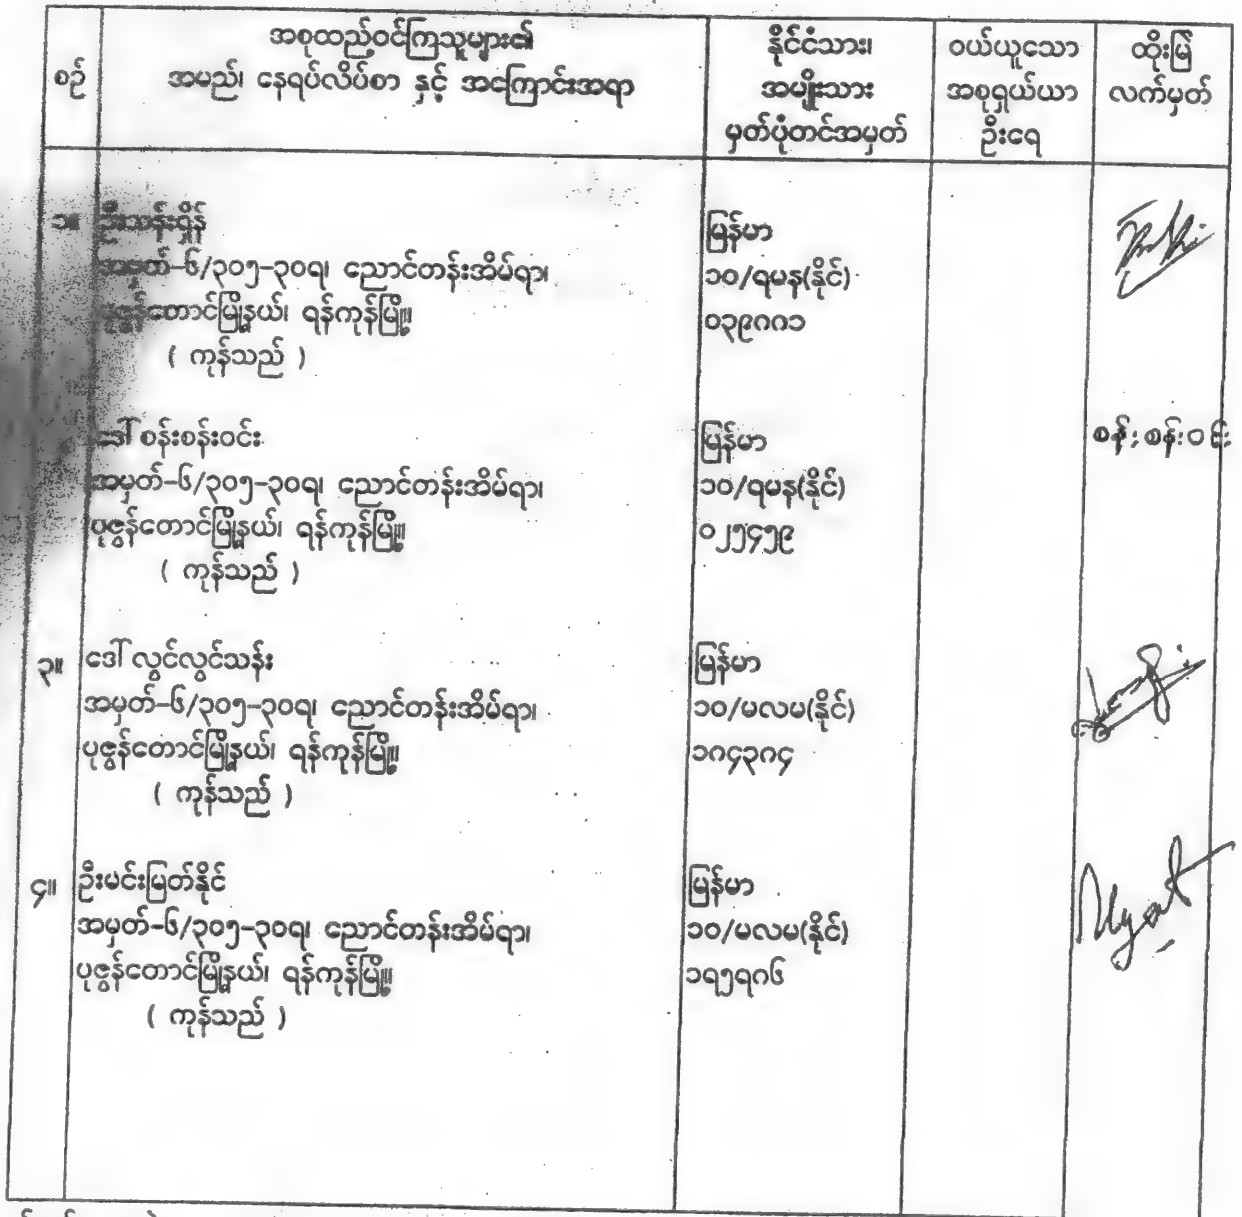 စဉ်
အစုထည့်ဝင်ကြသူများ၏
အမည်၊ နေရပ်လိပ်စာ နှင့် အကြောင်းအရာ
နိုင်ငံသား၊
အမျိုးသား
မှတ်ပုံတင်အမှတ်
ဝယ်ယူသော
အစုရှယ်ယာ
ဦးရေ
ထိုးမြဲ
လက်မှတ်
၁။ ဦးသန်းရှိန်
အမှတ်-၆/၃၀၅-၃၀၇၊ ညောင်တန်းအိမ်ရာ၊
ပုဇွန်တောင်မြို့နယ်၊ ရန်ကုန်မြို့။
( ကုန်သည် )
မြန်မာ
၁၀/ရမန(နိုင်)
၀၃၉၈၈၁
ဒေါ်စန်းစန်းဝင်း
အမှတ်-၆/၃၀၅-၃၀၇၊ ညောင်တန်းအိမ်ရာ၊
ပုဇွန်တောင်မြို့နယ်၊ ရန်ကုန်မြို့။
( ကုန်သည် )
မြန်မာ
၁၀/ရမန(နိုင်)
၀၂၅၄၅၉
စန်းစန်းဝင်း
၃။ ဒေါ်လွင်လွင်သန်း
အမှတ်-၆/၃၀၅-၃၀၇၊ ညောင်တန်းအိမ်ရာ၊
ပုဇွန်တောင်မြို့နယ်၊ ရန်ကုန်မြို့။
( ကုန်သည် )
မြန်မာ
၁၀/မလမ(နိုင်)
၁၈၄၃၈၄
၄။ ဦးမင်းမြတ်နိုင်
အမှတ်-၆/၃၀၅-၃၀၇၊ ညောင်တန်းအိမ်ရာ၊
ပုဇွန်တောင်မြို့နယ်၊ ရန်ကုန်မြို့။
( ကုန်သည် )
မြန်မာ
၁၀/မလမ(နိုင်)
၁၇၅၇၈၆